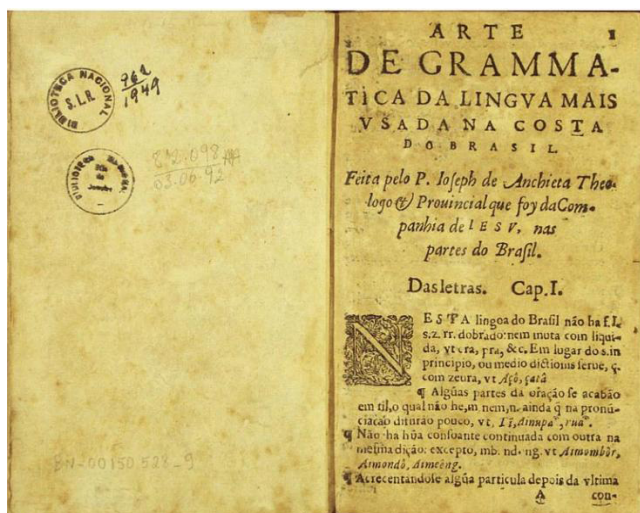 BIBLIOTECA NACIONAL
S.L.R.
962
1949
de
Janeiro
03.06.92
BN-00150.528-9
ARTE 1
DE GRAMMA-
TICA DA LINGVA MAIS
VSADA NA COSTA
DO BRASIL
Feita pelo P. Ioseph de Anchieta Theo-
logo & Prouincial que foy da Com-
panhia de IESV, nas
partes do Braſil.
Das letras. Cap. I.
NESTA lingoa do Braſil não ha f. l.
s. z. rr. dobrado nem muta com liqui-
da, vt cra, pra, &c. Em lugar do s. in
principio, ou medio dictionis ſerue, ç.
com zeura, vt Açô, çatâ
¶ Algũas partes da oração ſe acabão
em til, o qual não he, m, nem, n. ainda q̃ na pronũ-
ciação difirão pouco, vt,
¶ Não ha hũa conſoante continuada com outra na
meſma dição: excepto, mb. nd. ng. vt Aimombôr,
Aimondô, Aimeẽng.
¶ Acrecentandoſe algũa particula depois da vltima
A con-